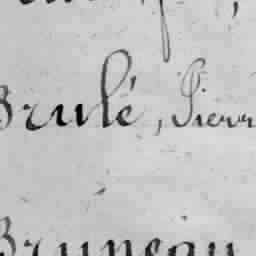 Brulé, Pierr
Bruneau